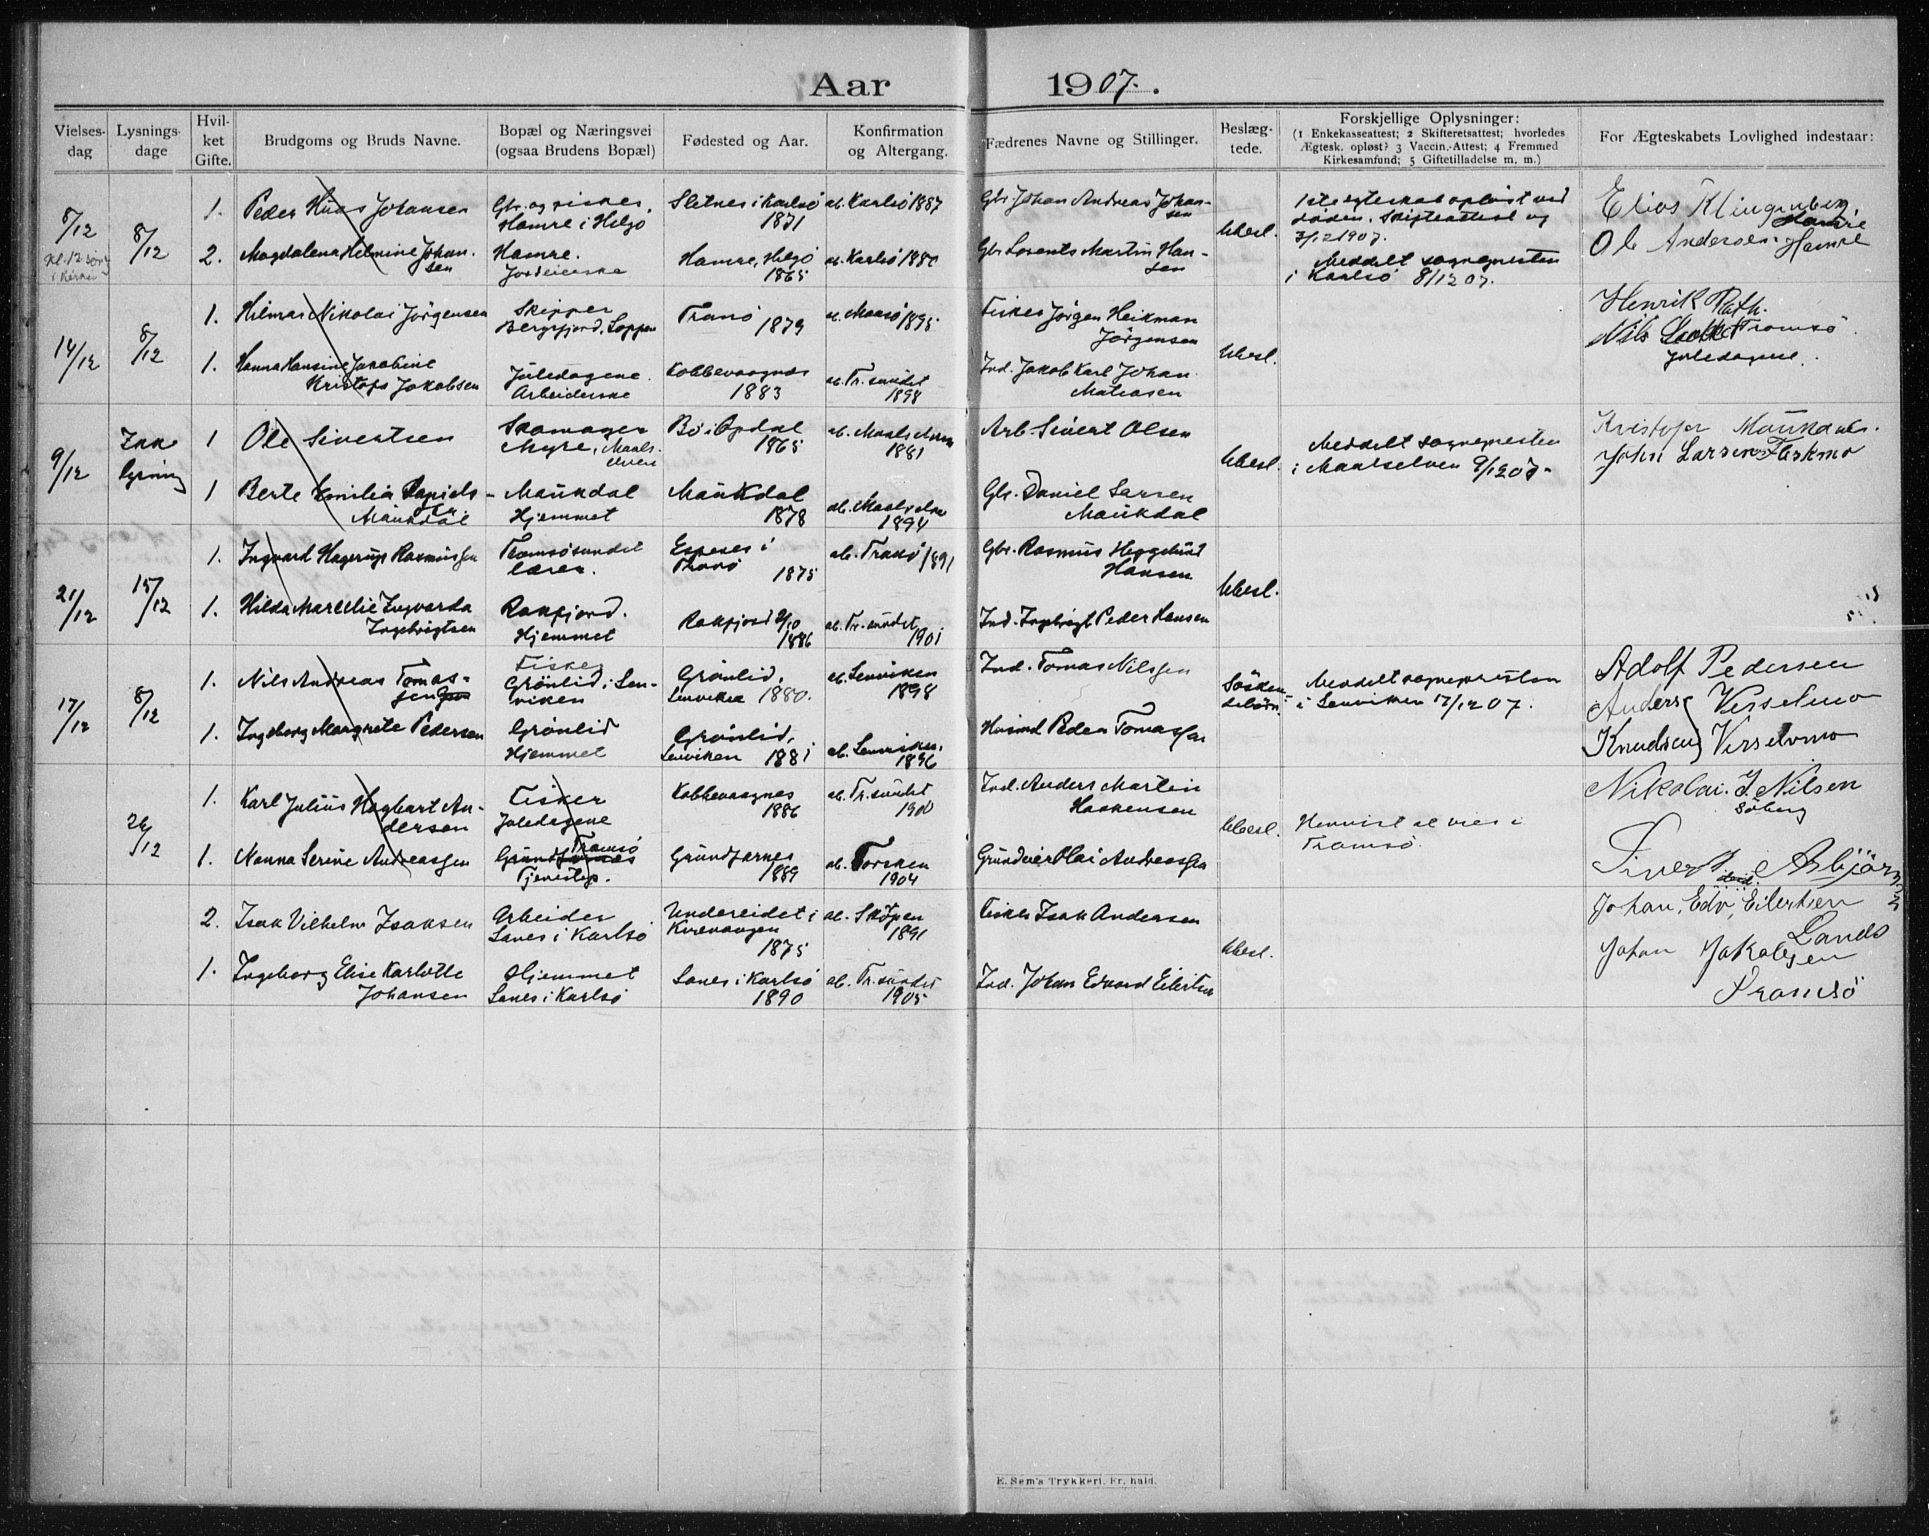 Aar 1907.
Vielses-dag
Lysnings-dage
Hvil-ket Gifte.
Brudgoms og Bruds Navne.
Bopæl og Næringsvei (ogsaa Brudens Bopæl)
Fødested og Aar.
Konfirmation og Altergang.
Fædrenes Navne og Stillinger.
Beslæg-tede.
Forskjellige Oplysninger:
(1 Enkekasseattest; 2 Skifteretsattest; hvorledes
Ægtesk. opløst? 3 Vaccin.-Attest; 4 Fremmed
Kirkesamfund; 5 Giftetilladelse m. m.)
For Ægteskabets Lovlighed indestaar:
8/12
8/12
1. Peder Hans Johansen
Gbr. og fisker,
Hamre i Helgö
Sletnes i Karlsö
1871
ab. Karlsö 1887
Gbr. Johan Andreas Johan-
sen
Ubesl.
1ste egteskab opløst ved
döden. Skifteattest og
3/12 1907.
Elias Klingenberg
Hamre
2. Magdalena Helmine Johan-
sen
Hamre.
Jordeierske
Hamre, Helgö
1865
ab. Karlsö 1880
Gbr. Lorents Martin Han-
sen
Meddelt sognepresten
i Karlsö 8/12 07.
Ole Andersen Hamre
14/12
8/12
1. Hilmar Nikolai Jörgensen
Skipper
Bergsfjord, Loppen
Tranö
1879
ab. Maasö 1895
Fisker Jörgen Heitman
Jörgensen
Ubesl.
Henrik Rath.
Nils
Tromsö
Juledagene.
1. Hanna Hansine Jakobine
Kristofa Jakobsen
Juledagene.
Arbeiderske
Kobbevaagnes
1883
ab. Tr. sundet
1898
Ind. Jakob Karl Johan
Matiasen
9/12
Ink
lysning
1 Ole Sivertsen
Skomager
Myre, Maals-
elven
Bö i Opdal
1865
ab. Maalselven
1881
Arb. Sivert Olsen
Ubesl.
Meddelt sognepresten
i Maalselven 9/12 07.
Kristofer Maukdal.
John Larsen Flaskmo
1 Berte Emilie Daniels-
sen
Maukdal
Maukdal
Hjemmet
Maukdal
1878
ab. Maalselven
1894
Gbr. Daniel Larsen
Maukdal
21/12
15/12
1. Ingvard Hagerup Rasmussen
Tromsösundet
lærer.
Espenes i
Tranö
1875
ab. Tranö 1891
Gbr. Rasmus Heggelund
Hansen
Ubesl.
1. Hilda Marelie Ingvarda
Ingebrigtsen
Rakfjord.
Hjemmet
Rakfjord 2/10
1886
ab. Tr. sundet
1901
Ind. Ingebrigt Peder Hansen
17/12
8/12
1. Nils Andreas Tomas-
sen
Fisker
Grönlid, i Len-
viken
Grönlid,
Lenviken 1880.
ab. Lenviken
1898
Ind. Tomas Nilssen
Sösken-
debörn
Meddelt sognepresten
i Lenviken 17/12 07.
Adolf Pedersen
Anders Visselmo
1. Ingeborg Margrete Pedersen
Grönlid
Hjemmet
Grönlid,
Lenviken 1881
ab. Lenviken.
1896
Husmd Peder Tomassen
Knudsen
26/12
1. Karl Julius Hagbart An-
dersen
Fisker
Juledagene
Kobbevaagnes
1886
ab. Tr. sundet
1900
Ind. Anders Martin
Haakensen
Ubesl.
Henvist at vies i
Tromsö.
Nikolai J. Nilsen
Söberg
1. Nanna Serine Andreassen
Tromsö
Grundfarnes
Tjenestep.
Grundfarnes
1889
ab. Torsken
1904
Grundeier Olai Andreassen
Sivert Asbjörnsen
2. Isak Vilhelm Isaksen
Arbeider
Lanes i Karlsö
Undereidet i
Kvenangen
1875
ab. Sköpen
1891
Fisker Isak Andersen
Ubesl.
Johan Edv. Eilertsen
Lanes
1. Ingeborg Elise Karlotte
Johansen
Hjemmet
Lanes i Karlsö
Lanes i Karlsö
1890
ab. Tr. sundet
1905
Ind. Johan Edvard Eilertsen
Johan Jakobsen
Tromsö
E. Sem's Trykkeri, Fr. hald.